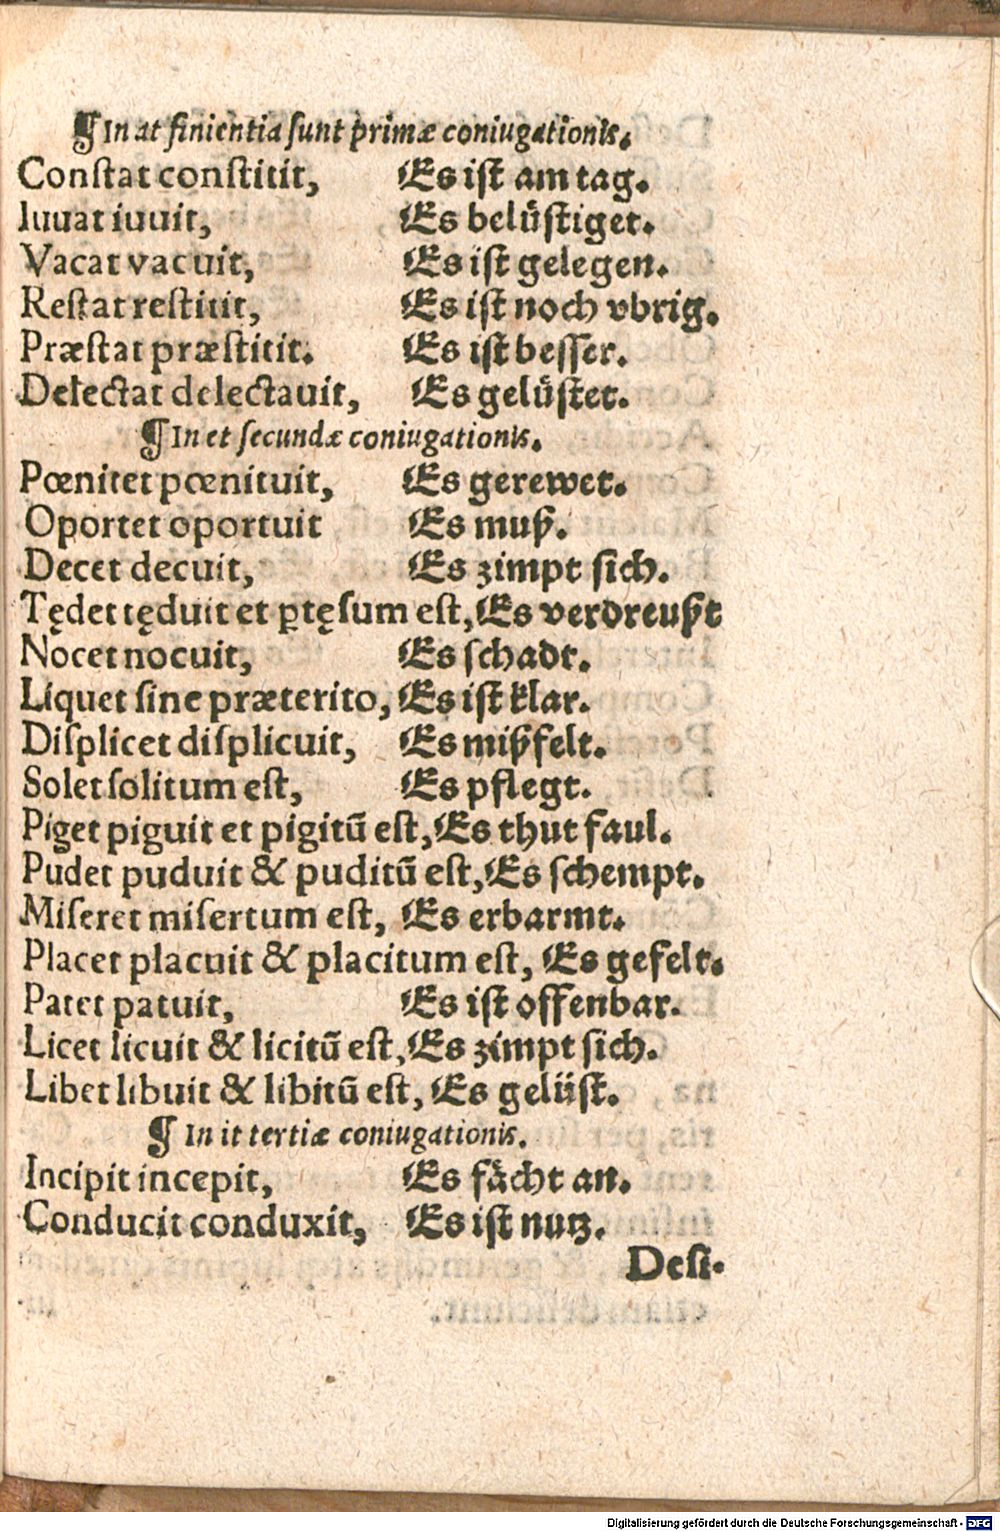 ¶ In at finientia ſunt primæ coniugationis.
Conſtat conſtitit, Es iſt am tag.
Iuuat iuuit, Es belüſtiget.
Vacat vacuit, Es iſt gelegen.
Reſtat reſtitit, Es iſt noch vbrig.
Præſtat præſtitit. Es iſt beſſer.
Delectat delectauit, Es gelüſtet.
¶ In et ſecundæ coniugationis.
Pœnitet pœnituit, Es gerewet.
Oportet oportuit Es muß.
Decet decuit, Es zimpt ſich.
Tędet tęduit et ꝑtęſum eſt, Es verdreußt
Nocet nocuit, Es ſchadt.
Liquet ſine præterito, Es iſt klar.
Diſplicet diſplicuit, Es mißfelt.
Solet ſolitum eſt, Es pflegt.
Piget piguit et pigitũ eſt, Es thut faul.
Pudet puduit & puditũ eſt, Es ſchempt.
Miſeret miſertum eſt, Es erbarmt.
Placet placuit & placitum eſt, Es gefelt.
Patet patuit, Es iſt offenbar.
Licet licuit & licitũ eſt, Es zimpt ſich.
Libet libuit & libitũ eſt, Es gelüſt.
¶ In it tertiæ coniugationis.
Incipit incepit, Es fächt an.
Conducit conduxit, Es iſt nutz.
Deſi-
Digitalisierung gefördert durch die Deutsche Forschungsgemeinschaft - DFG